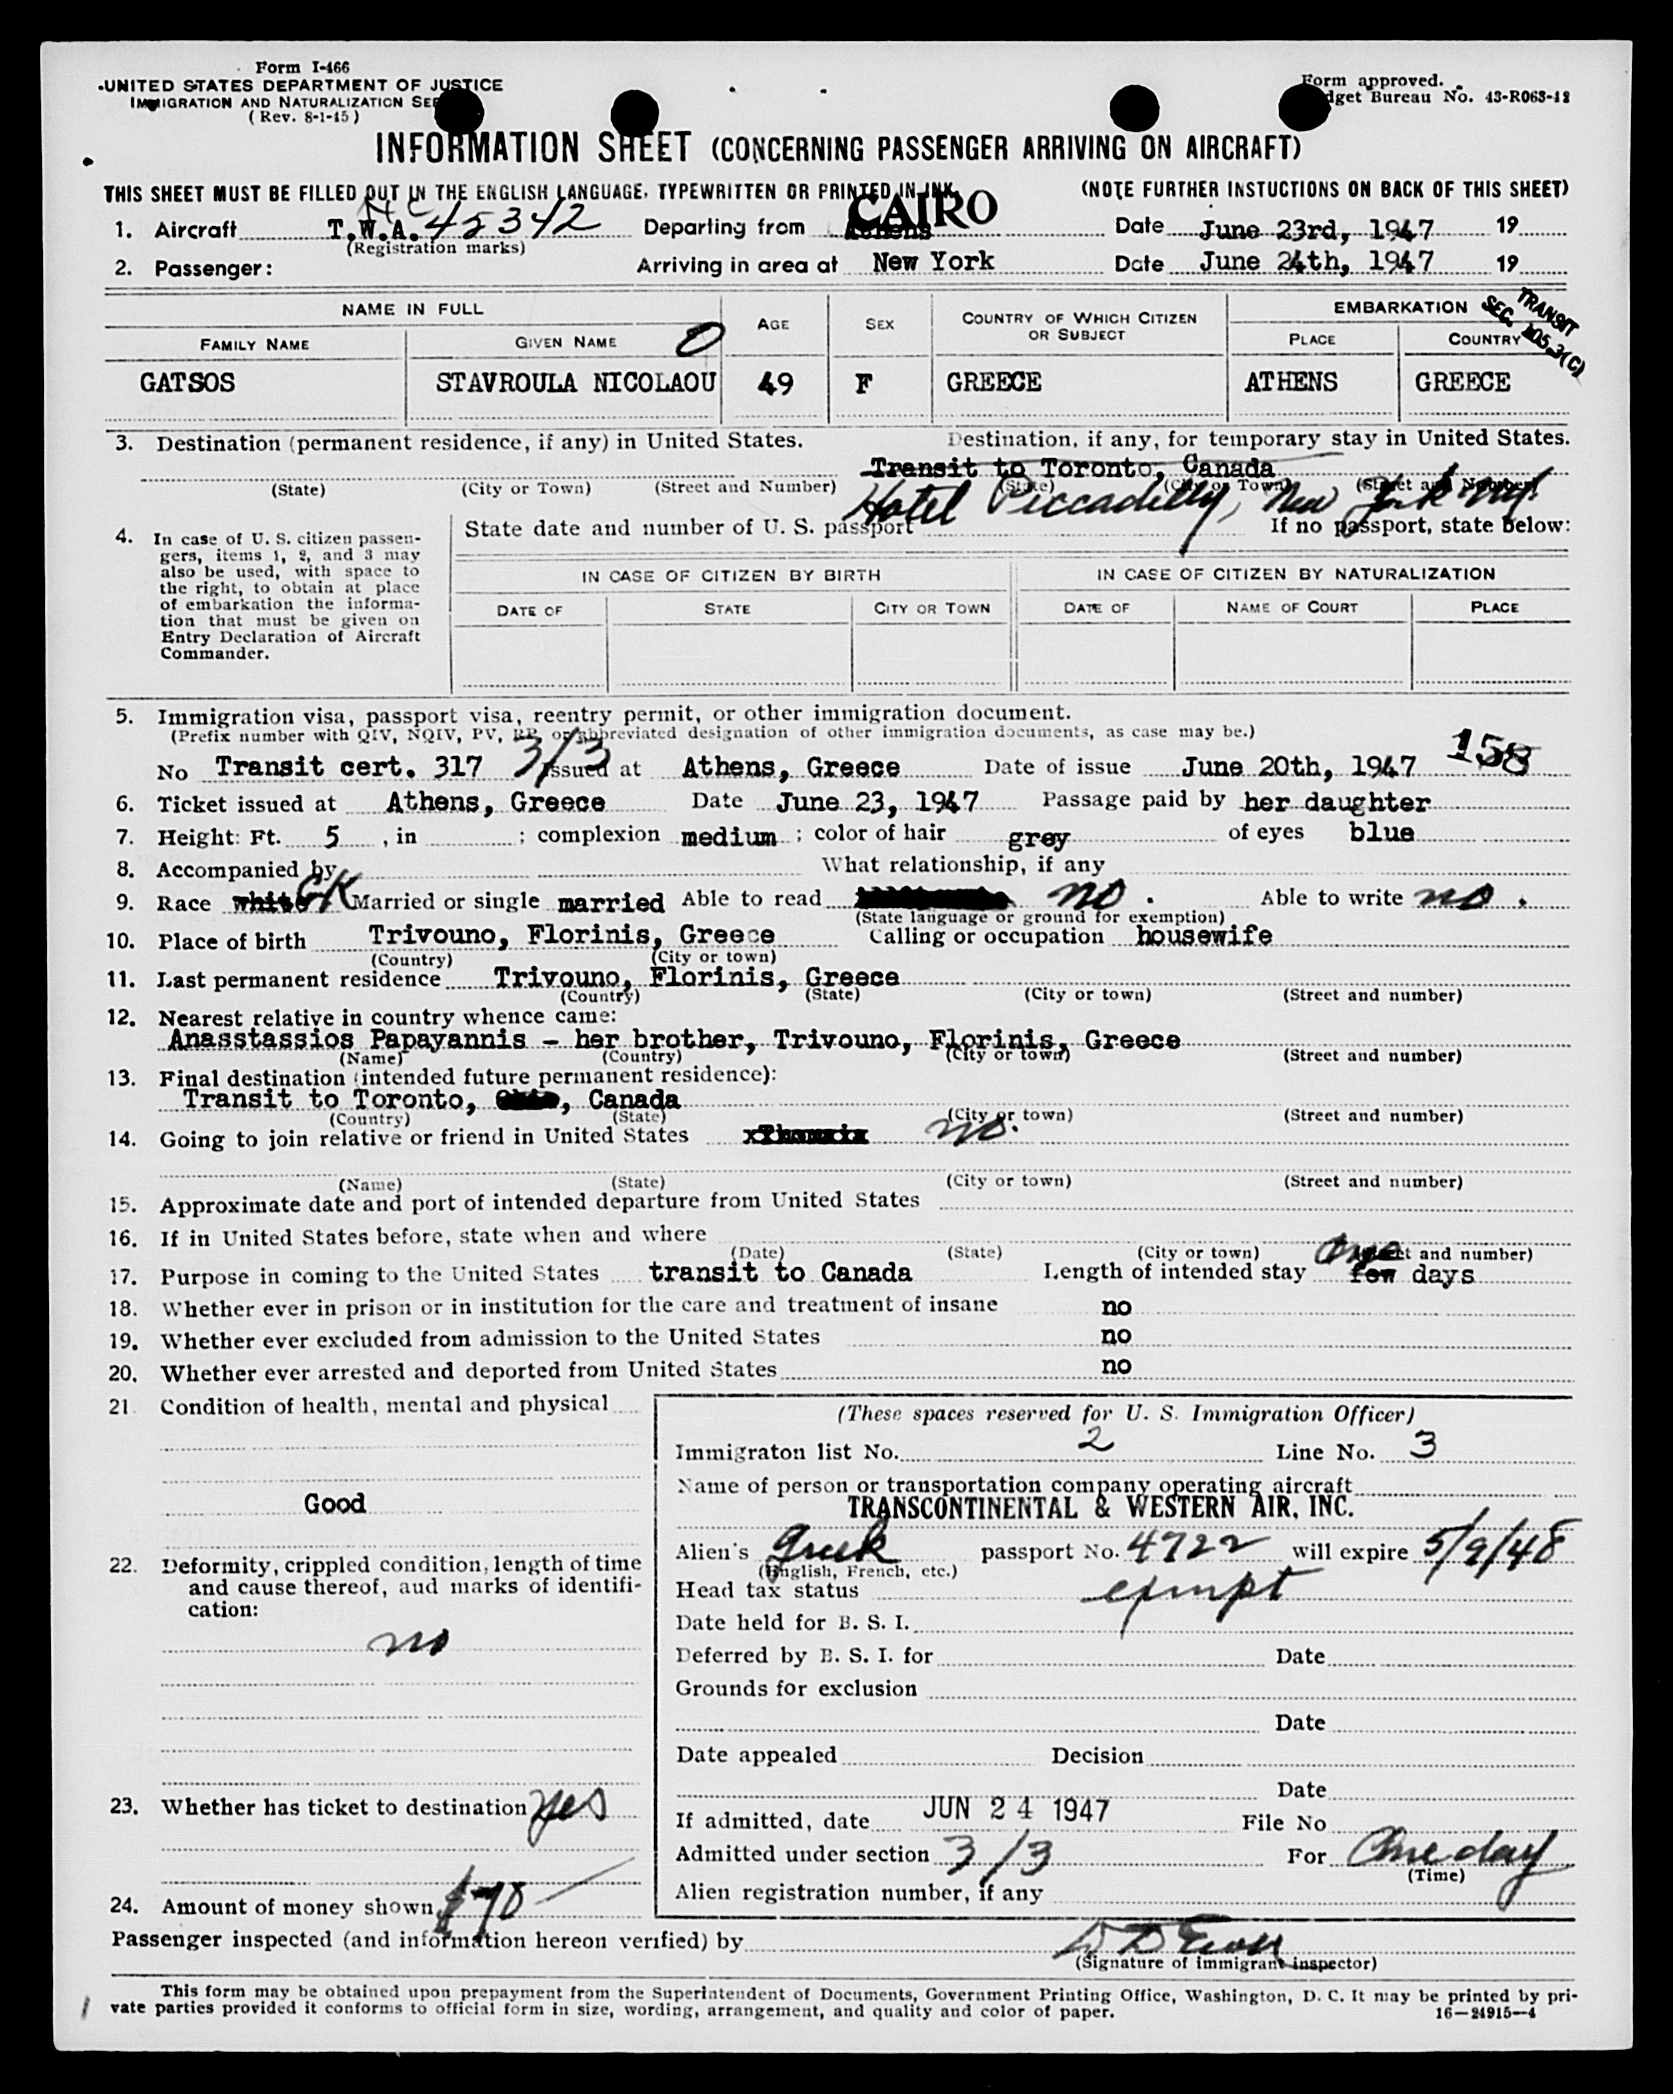 Form I-466
UNITED STATES DEPARTMENT OF JUSTICE
IMMIGRATION AND NATURALIZATION
(Rev. 8-1-45)
Form approved.
Budget Bureau No. 43-R063-42
INFORMATION SHEET (CONCERNING PASSENGER ARRIVING ON AIRCRAFT)
THIS SHEET MUST BE FILLED OUT IN THE ENGLISH LANGUAGE, TYPEWRITTEN OR PRINTED IN INK. (NOTE FURTHER INSTUCTIONS ON BACK OF THIS SHEET)
1. Aircraft T.W.A. NC 45342 Departing from Athens CAIRO Date June 23rd, 1947 19
(Registration marks)
2. Passenger: Arriving in area at New York Date June 24th, 1947 19
TRANSIT
SEC. 105.3(C)
NAME IN FULL AGE SEX COUNTRY OF WHICH CITIZEN OR SUBJECT EMBARKATION
FAMILY NAME GIVEN NAME PLACE COUNTRY
GATSOS STAVROULA NICOLAOU 49 F GREECE ATHENS GREECE
3. Destination (permanent residence, if any) in United States. Destination, if any, for temporary stay in United States.
Transit to Toronto, Canada
(State) (City or Town) (Street and Number) (State) (City or Town) (Street and Number)
Hotel Piccadilly, New York NY.
4. In case of U. S. citizen passengers, items 1, 2, and 3 may also be used, with space to the right, to obtain at place of embarkation the information that must be given on Entry Declaration of Aircraft Commander.
State date and number of U. S. passport If no passport, state below:
IN CASE OF CITIZEN BY BIRTH IN CASE OF CITIZEN BY NATURALIZATION
DATE OF STATE CITY OR TOWN DATE OF NAME OF COURT PLACE
5. Immigration visa, passport visa, reentry permit, or other immigration document.
(Prefix number with QIV, NQIV, PV, RP, or abbreviated designation of other immigration documents, as case may be.)
No Transit cert. 317 3/3 Issued at Athens, Greece Date of issue June 20th, 1947 158
6. Ticket issued at Athens, Greece Date June 23, 1947 Passage paid by her daughter
7. Height: Ft. 5 , in ; complexion medium ; color of hair grey of eyes blue
8. Accompanied by What relationship, if any
9. Race white GK Married or single married Able to read no . Able to write no .
(State language or ground for exemption)
10. Place of birth Trivouno, Florinis, Greece Calling or occupation housewife
(Country) (City or town)
11. Last permanent residence Trivouno, Florinis, Greece
(Country) (State) (City or town) (Street and number)
12. Nearest relative in country whence came:
Anasstassios Papayannis - her brother, Trivouno, Florinis, Greece
(Name) (Country) (City or town) (Street and number)
13. Final destination (intended future permanent residence):
Transit to Toronto, , Canada
(Country) (State) (City or town) (Street and number)
14. Going to join relative or friend in United States no.
(Name) (State) (City or town) (Street and number)
15. Approximate date and port of intended departure from United States
16. If in United States before, state when and where
(Date) (State) (City or town) (Street and number)
17. Purpose in coming to the United States transit to Canada Length of intended stay One few days
18. Whether ever in prison or in institution for the care and treatment of insane no
19. Whether ever excluded from admission to the United States no
20. Whether ever arrested and deported from United States no
21. Condition of health, mental and physical
Good
22. Deformity, crippled condition, length of time and cause thereof, and marks of identification:
no
23. Whether has ticket to destination yes
24. Amount of money shown $70
(These spaces reserved for U. S. Immigration Officer)
Immigraton list No. 2 Line No. 3
Name of person or transportation company operating aircraft
TRANSCONTINENTAL & WESTERN AIR, INC.
Alien's Greek passport No. 4722 will expire 5/9/48
(English, French, etc.)
Head tax status exmpt
Date held for B. S. I.
Deferred by B. S. I. for Date
Grounds for exclusion
Date
Date appealed Decision
Date
If admitted, date JUN 24 1947 File No
Admitted under section 3/3 For One day
(Time)
Alien registration number, if any
Passenger inspected (and information hereon verified) by
(Signature of immigrant inspector)
This form may be obtained upon prepayment from the Superintendent of Documents, Government Printing Office, Washington, D. C. It may be printed by pri-
vate parties provided it conforms to official form in size, wording, arrangement, and quality and color of paper. 16—24915-4